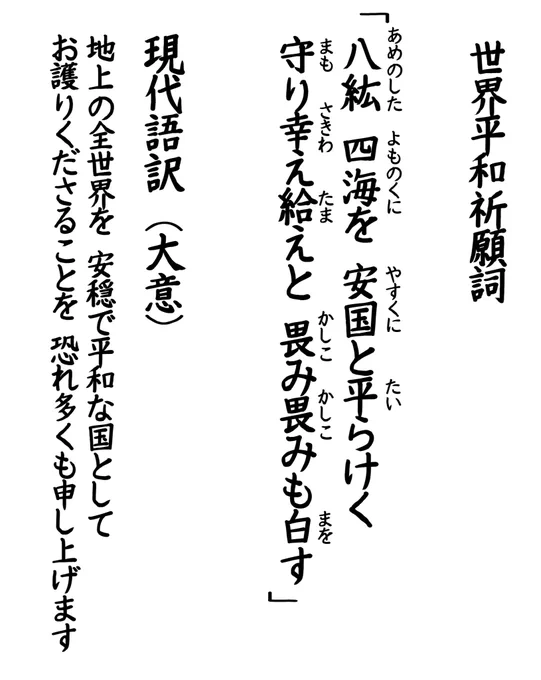 世界平和祈願詞
「八紘 四海を 安国と平らけく
あめのした よものくに やすくに たい
守り幸え給えと 畏み畏みも白す」
まも さきわ たま かしこ かしこ まを
現代語訳（大意）
地上の全世界を 安穏で平和な国として
お護りくださることを 恐れ多くも申し上げます